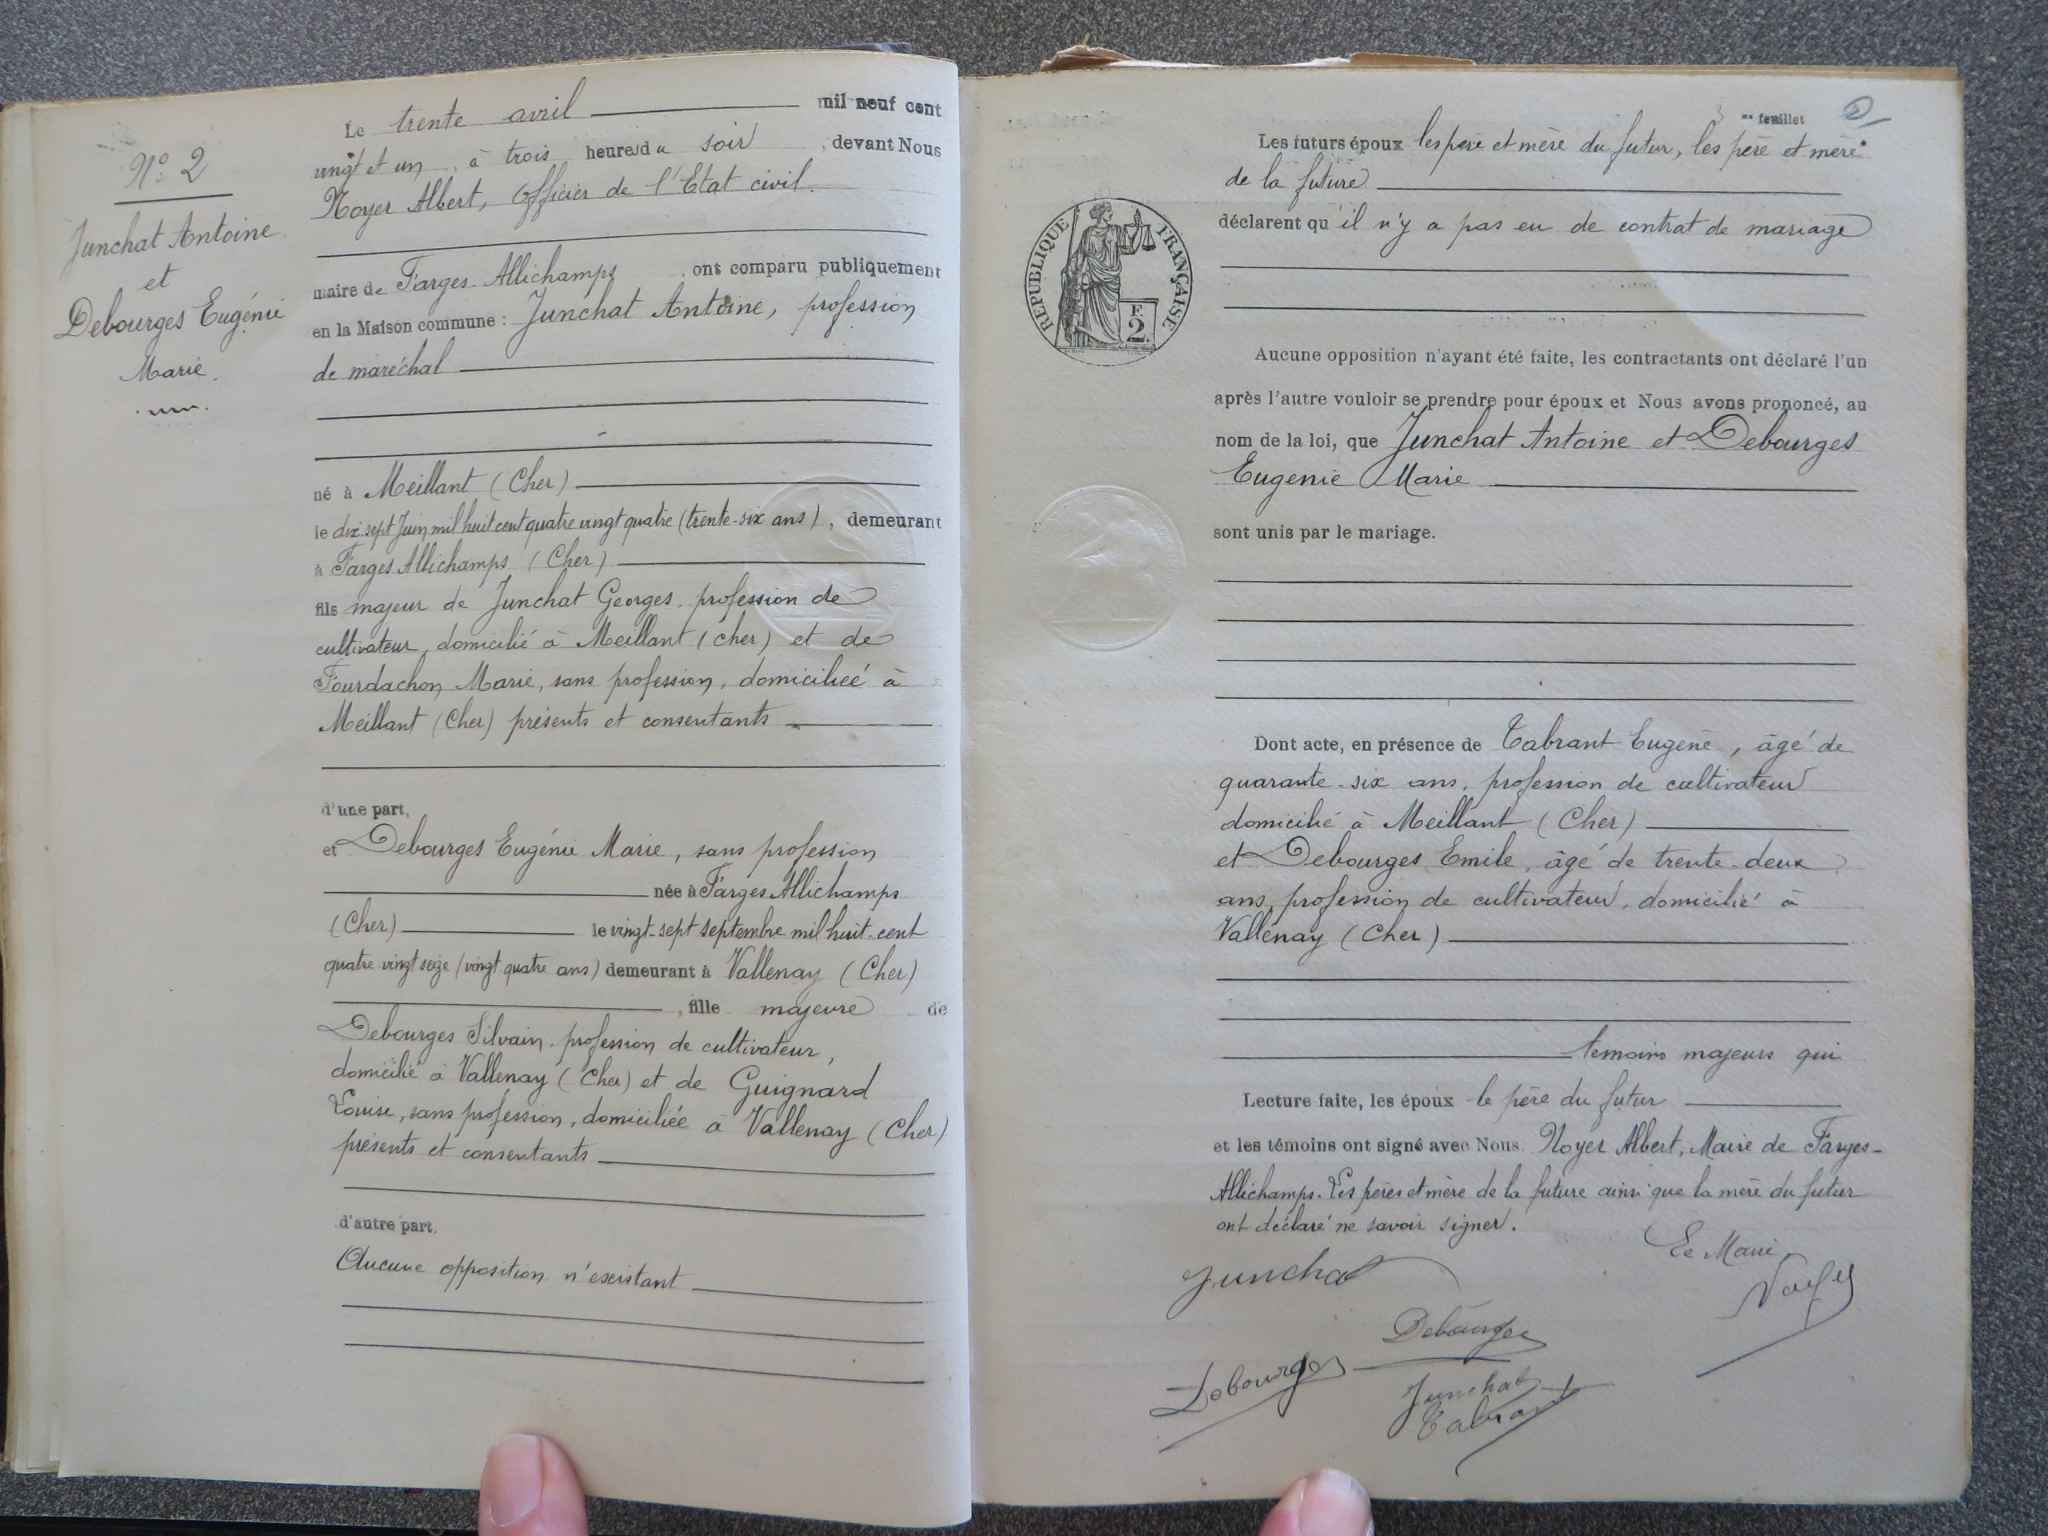 N° 2
Junchat Antoine
et
Debourges Eugénie
Marie.
Le trente avril mil neuf cent
vingt et un, à trois heures du soir, devant Nous
Noyer Albert, Officier de l'Etat civil.
maire de Farges-Allichamps, ont comparu publiquement
en la Maison commune : Junchat Antoine, profession
de maréchal
né à Meillant (Cher)
le dix sept Juin mil huit cent quatre vingt quatre (trente-six ans), demeurant
à Farges Allichamps (Cher)
fils majeur de Junchat Georges, profession de
cultivateur, domicilié à Meillant (Cher) et de
Fourdachon Marie, sans profession, domiciliée à
Meillant (Cher) présents et consentants
d'une part,
et Debourges Eugénie Marie, sans profession
née à Farges Allichamps
(Cher) le vingt-sept septembre mil huit-cent
quatre vingt seize (vingt quatre ans) demeurant à Vallenay (Cher)
, fille majeure de
Debourges Silvain, profession de cultivateur,
domicilié à Vallenay (Cher) et de Guignard
Louise, sans profession, domiciliée à Vallenay (Cher)
présents et consentants
d'autre part.
Aucune opposition n'existant
me feuillet 2
Les futurs époux les père et mère du futur, les père et mère
de la future
déclarent qu'il n'y a pas eu de contrat de mariage
RÉPUBLIQUE FRANÇAISE
F.
2.
Aucune opposition n'ayant été faite, les contractants ont déclaré l'un
après l'autre vouloir se prendre pour époux et Nous avons prononcé, au
nom de la loi, que Junchat Antoine et Debourges
Eugenie Marie
sont unis par le mariage.
Dont acte, en présence de Tabrant Eugène, âgé de
quarante-six ans, profession de cultivateur
domicilié à Meillant (Cher)
et Debourges Emile, âgé de trente-deux
ans, profession de cultivateur, domicilié à
Vallenay (Cher)
temoins majeurs qui
Lecture faite, les époux le père du futur
et les témoins ont signé avec Nous. Noyer Albert, Maire de Farges-
Allichamps. Les pères et mère de la future ainsi que la mère du futur
ont déclaré ne savoir signer.
Le Maire
Junchat
Noyer
Debourges
Debourges
Junchat
Tabrant